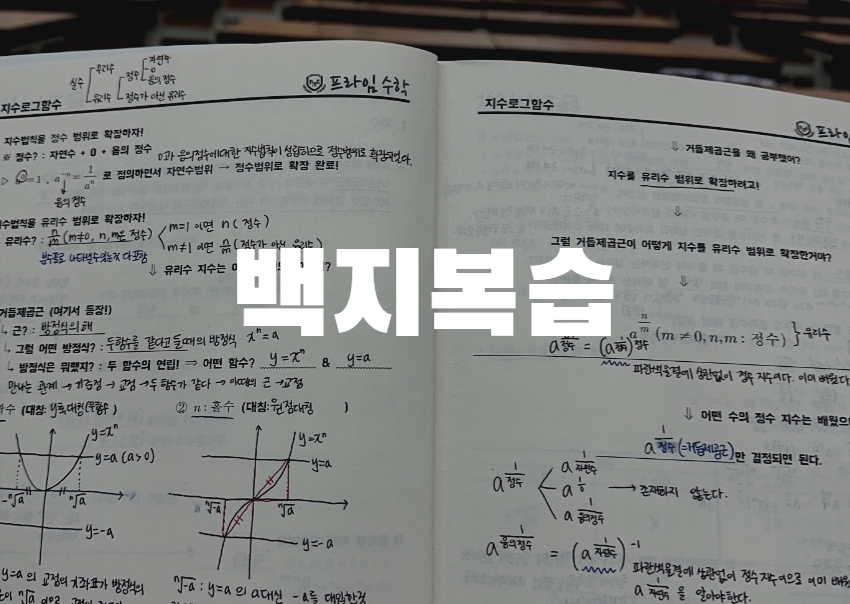 실수
유리수
유리수
정수
정수가 아닌 유리수
자연수
0
음의 정수
프라임 수학
지수로그함수
지수법칙을 정수 범위로 확장하자!
※ 정수? : 자연수 + 0 + 음의 정수
0과 음의정수에 대한 지수법칙이 성립하므로 정수범위로 확장되었다.
▷ a⁰=1, a⁻ⁿ = 1/aⁿ 로 정의하면서 자연수범위 → 정수범위로 확장 완료!
음의 정수
지수법칙을 유리수 범위로 확장하자!
유리수? : n/m (m≠0, n, m은 정수)
m=1 이면 n (정수)
m≠1 이면 n/m (정수가 아닌 유리수)
분수꼴로 나타낼수있는지 다포함
⇓ 유리수 지수는
백지복습
거듭제곱근 (여기서 등장!)
↳ 근? : 방정식의 해
↳ 그럼 어떤 방정식? : 두함수를 같다고 둘때의 방정식 xⁿ=a
↳ 방정식은 뭐랬지? : 두 함수의 연립! ⇒ 어떤 함수? y=xⁿ & y=a
만나는 관계 → 기준점 → 교점 → 두 함수가 같다 → 이때의 근 → 교점
수 (대칭: y축대칭(우함수)
② n : 홀수 (대칭: 원점대칭 )
y=xⁿ
y=a (a>0)
-ⁿ√a
ⁿ√a
y=-a
y=xⁿ
y=a
ⁿ√-a
ⁿ√a
y=-a
y=a 의 교점의 x좌표가 방정식의
ⁿ√a
ⁿ√-a : y=a 의 a대신 -a를 대입한것
지수로그함수
프라임
⇓ 거듭제곱근을 왜 공부했어?
지수를 유리수 범위로 확장하려고!
⇓
그럼 거듭제곱근이 어떻게 지수를 유리수 범위로 확장한거야?
⇓
a^(n/m) (m ≠ 0, n, m : 정수) } 유리수
a^(정수/정수) = (a^(1/정수))^정수
파란색물결에 상관없이 정수지수이다. 이미 배웠다
⇓ 어떤 수의 정수 지수는 배웠으
a^(1/정수) (=거듭제곱근)만 결정되면 된다.
a^(1/정수)
a^(1/자연수)
a^(1/0) → 존재하지 않는다.
a^(1/음의정수)
a^(1/음의정수) = (a^(1/자연수))^-1
파란색물결에 상관없이 정수지수이므로 이미 배웠
a^(1/자연수) 을 알아야한다.